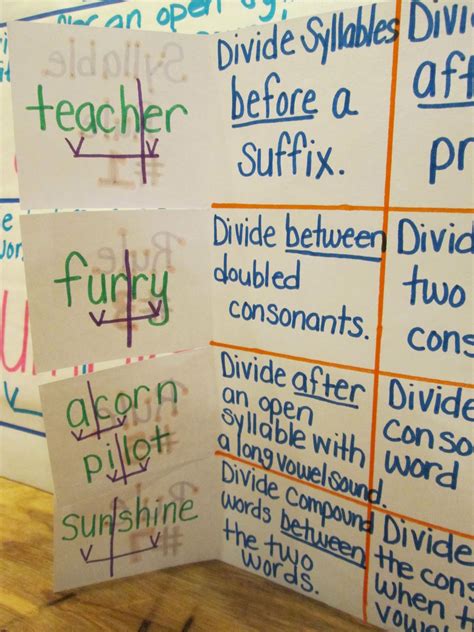 an open sy
teacher
Divide Syllables
before a
suffix.
Divi
aft
pr
furry
Divide between
doubled
consonants.
Divid
two
cons
acorn
pilot
Divide after
an open
syllable with
a long vowel sound.
Divid
conso
word
sunshine
Divide Compound
words between
the two
words.
Divide
the cons
when t
vowe